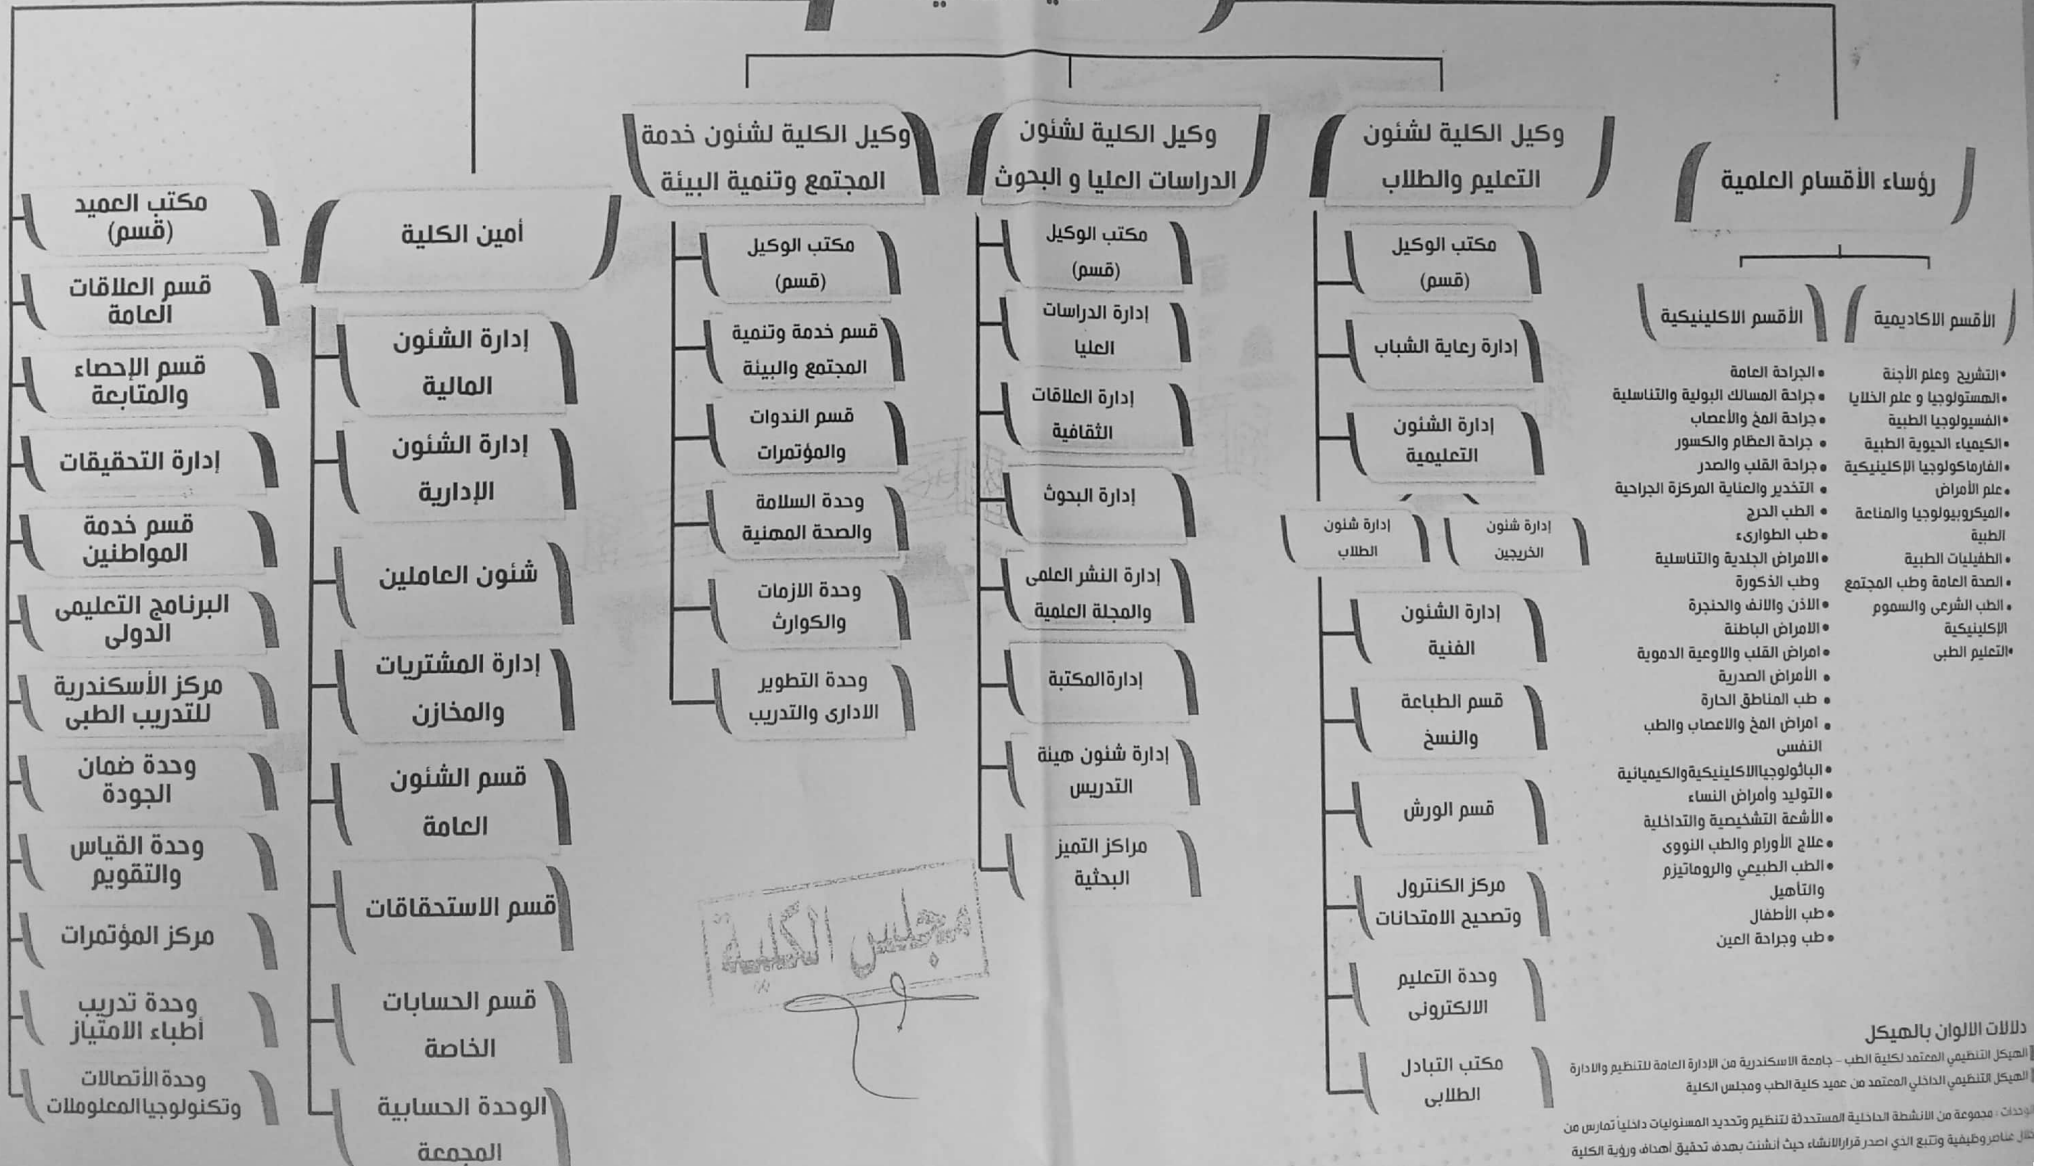 رؤساء الأقسام العلمية
الأقسم الاكاديمية
•التشريح وعلم الأجنة
•الهستولوجيا و علم الخلايا
•الفسيولوجيا الطبية
•الكيمياء الحيوية الطبية
•الفارماكولوجيا الإكلينيكية
•علم الأمراض
•الميكروبيولوجيا والمناعة
الطبية
•الطفيليات الطبية
•الصحة العامة وطب المجتمع
•الطب الشرعى والسموم
الإكلينيكية
•التعليم الطبى
الأقسم الاكلينيكية
•الجراحة العامة
•جراحة المسالك البولية والتناسلية
•جراحة المخ والأعصاب
•جراحة العظام والكسور
•جراحة القلب والصدر
•التخدير والعناية المركزة الجراحية
•الطب الحرج
•طب الطوارىء
•الامراض الجلدية والتناسلية
وطب الذكورة
•الاذن والانف والحنجرة
•الامراض الباطنة
•امراض القلب والاوعية الدموية
•الأمراض الصدرية
•طب المناطق الحارة
•امراض المخ والاعصاب والطب
النفسى
•الباثولوجياالاكلينيكيةوالكيميائية
•التوليد وأمراض النساء
•الأشعة التشخيصية والتداخلية
•علاج الأورام والطب النووى
•الطب الطبيعي والروماتيزم
والتأهيل
•طب الأطفال
•طب وجراحة العين
وكيل الكلية لشئون
التعليم والطلاب
مكتب الوكيل
(قسم)
إدارة رعاية الشباب
إدارة الشئون
التعليمية
إدارة شئون
الخريجين
إدارة شئون
الطلاب
إدارة الشئون
الفنية
قسم الطباعة
والنسخ
قسم الورش
مركز الكنترول
وتصحيح الامتحانات
وحدة التعليم
الالكترونى
مكتب التبادل
الطلابى
وكيل الكلية لشئون
الدراسات العليا و البحوث
مكتب الوكيل
(قسم)
إدارة الدراسات
العليا
إدارة العلاقات
الثقافية
إدارة البحوث
إدارة النشر العلمى
والمجلة العلمية
إدارةالمكتبة
إدارة شئون هيئة
التدريس
مراكز التميز
البحثية
وكيل الكلية لشئون خدمة
المجتمع وتنمية البيئة
مكتب الوكيل
(قسم)
قسم خدمة وتنمية
المجتمع والبيئة
قسم الندوات
والمؤتمرات
وحدة السلامة
والصحة المهنية
وحدة الازمات
والكوارث
وحدة التطوير
الادارى والتدريب
مجلس الكلية
أمين الكلية
إدارة الشئون
المالية
إدارة الشئون
الإدارية
شئون العاملين
إدارة المشتريات
والمخازن
قسم الشئون
العامة
قسم الاستحقاقات
قسم الحسابات
الخاصة
الوحدة الحسابية
المجمعة
مكتب العميد
(قسم)
قسم العلاقات
العامة
قسم الإحصاء
والمتابعة
إدارة التحقيقات
قسم خدمة
المواطنين
البرنامج التعليمى
الدولى
مركز الأسكندرية
للتدريب الطبى
وحدة ضمان
الجودة
وحدة القياس
والتقويم
مركز المؤتمرات
وحدة تدريب
أطباء الامتياز
وحدة الأتصالات
وتكنولوجياالمعلوملات
دلالات الالوان بالهيكل
الهيكل التنظيمي المعتمد لكلية الطب – جامعة الاسكندرية من الإدارة العامة للتنظيم والادارة
الهيكل التنظيمي الداخلي المعتمد من عميد كلية الطب ومجلس الكلية
الوحدات : مجموعة من الانشطة الداخلية المستحدثة لتنظيم وتحديد المسئوليات داخلياً تمارس من
خلال عناصر وظيفية وتتبع الذي اصدر قرارالانشاء حيث أنشئت بهدف تحقيق أهداف ورؤية الكلية